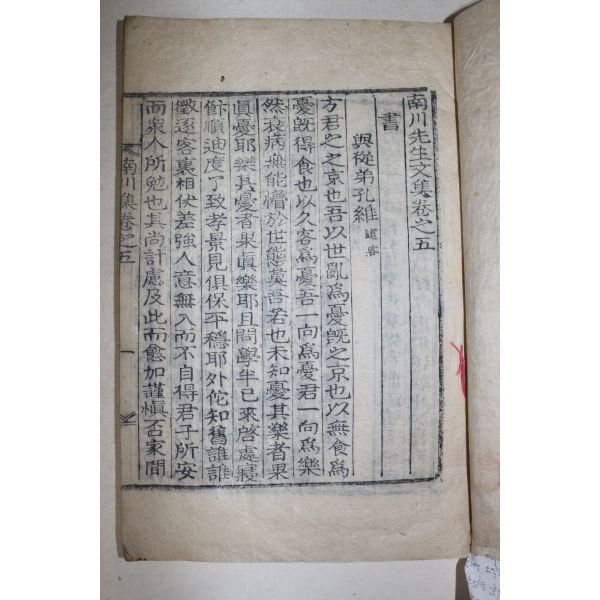 南川先生文集卷之五
書
與從弟孔維 道容
方君之之京也吾以世亂爲憂旣之京也以無食爲
憂旣得食也以久客爲憂吾一向爲憂君一向爲樂
然哀病無能憎於世態莫吾若也未知憂其樂者果
眞憂耶樂其憂者果眞樂耶且問學半已來啓處寢
餗順迪度了致孝景見俱保平穩耶外佗知舊誰誰
徵逐客裏相伏差強人意無入而不自得君子所安
而衆人所勉也其尚計慮及此而愈加謹愼否家間
南川集卷之五
一